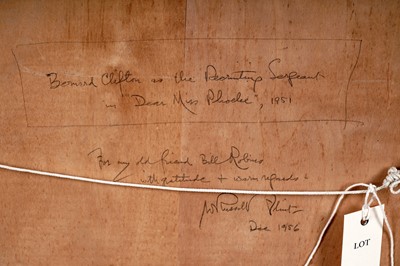 Bernard Clifton as the Recruiting Sergeant
in "Dear Miss Phoebe", 1951
For my old friend Bill Robins
with gratitude + warm regards
W Russell Flint
Dec 1956
LOT